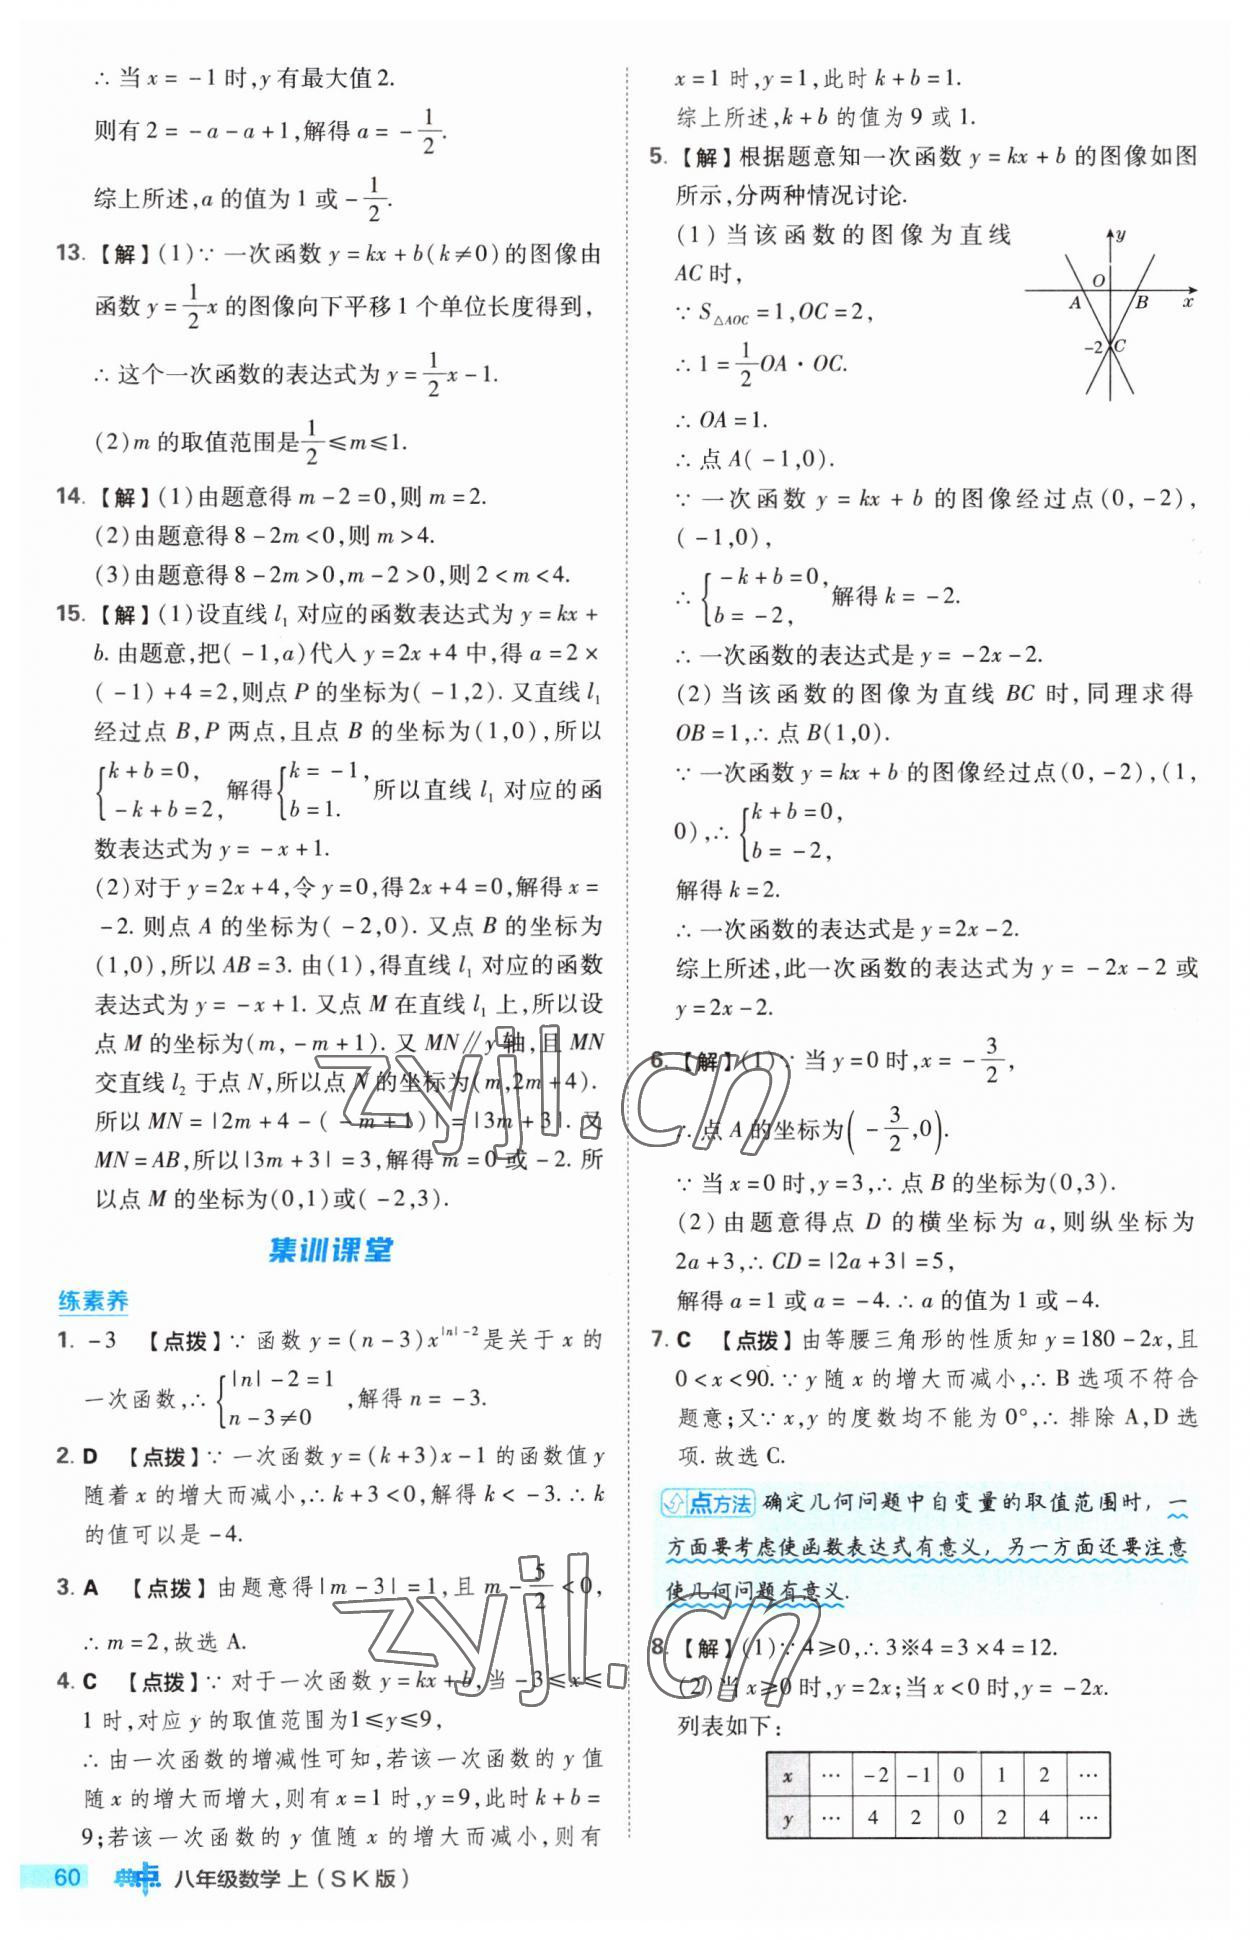 ∴ 当 x = -1 时, y 有最大值 2.
则有 2 = -a - a + 1, 解得 a = -1/2.
综上所述, a 的值为 1 或 -1/2.
13. 【解】(1)∵ 一次函数 y = kx + b(k≠0)的图像由
函数 y = 1/2 x 的图像向下平移 1 个单位长度得到,
∴ 这个一次函数的表达式为 y = 1/2 x - 1.
(2)m 的取值范围是 1/2 ≤ m ≤ 1.
14. 【解】(1)由题意得 m - 2 = 0, 则 m = 2.
(2)由题意得 8 - 2m < 0, 则 m > 4.
(3)由题意得 8 - 2m > 0, m - 2 > 0, 则 2 < m < 4.
15. 【解】(1)设直线 l₁ 对应的函数表达式为 y = kx +
b. 由题意, 把(-1,a)代入 y = 2x + 4 中, 得 a = 2 ×
(-1) + 4 = 2, 则点 P 的坐标为(-1,2). 又直线 l₁
经过点 B,P 两点, 且点 B 的坐标为(1,0), 所以
{k + b = 0, -k + b = 2, 解得 {k = -1, b = 1. 所以直线 l₁ 对应的函
数表达式为 y = -x + 1.
(2)对于 y = 2x + 4, 令 y = 0, 得 2x + 4 = 0, 解得 x =
-2. 则点 A 的坐标为(-2,0). 又点 B 的坐标为
(1,0), 所以 AB = 3. 由(1), 得直线 l₁ 对应的函数
表达式为 y = -x + 1. 又点 M 在直线 l₁ 上, 所以设
点 M 的坐标为(m, -m + 1). 又 MN∥y 轴, 且 MN
交直线 l₂ 于点 N, 所以点 N 的坐标为(m,2m + 4).
所以 MN = |2m + 4 - (-m + 1)| = |3m + 3|. 又
MN = AB, 所以|3m + 3| = 3, 解得 m = 0 或 -2. 所
以点 M 的坐标为(0,1)或(-2,3).
集训课堂
练素养
1. -3 【点拨】∵ 函数 y = (n - 3)x^(|n|-2) 是关于 x 的
一次函数, ∴ {|n| - 2 = 1 n - 3 ≠ 0 , 解得 n = -3.
2. D 【点拨】∵ 一次函数 y = (k + 3)x - 1 的函数值 y
随着 x 的增大而减小, ∴ k + 3 < 0, 解得 k < -3. ∴ k
的值可以是 -4.
3. A 【点拨】由题意得|m - 3| = 1, 且 m - 5/2 < 0,
∴ m = 2, 故选 A.
4. C 【点拨】∵ 对于一次函数 y = kx + b, 当 -3 ≤ x ≤
1 时, 对应 y 的取值范围为1 ≤ y ≤ 9,
∴ 由一次函数的增减性可知, 若该一次函数的 y 值
随 x 的增大而增大, 则有 x = 1 时, y = 9, 此时 k + b =
9; 若该一次函数的 y 值随 x 的增大而减小, 则有
x = 1 时, y = 1, 此时 k + b = 1.
综上所述, k + b 的值为 9 或 1.
5. 【解】根据题意知一次函数 y = kx + b 的图像如图
所示, 分两种情况讨论.
(1) 当该函数的图像为直线
AC 时,
∵ S△AOC = 1, OC = 2,
∴ 1 = 1/2 OA · OC.
∴ OA = 1.
∴ 点 A(-1,0).
y
O
A
B
x
-2
C
∵ 一次函数 y = kx + b 的图像经过点(0, -2),
(-1,0),
∴ {-k + b = 0, b = -2, 解得 k = -2.
∴ 一次函数的表达式是 y = -2x - 2.
(2) 当该函数的图像为直线 BC 时, 同理求得
OB = 1, ∴ 点 B(1,0).
∵ 一次函数 y = kx + b 的图像经过点(0, -2), (1,
0), ∴ {k + b = 0, b = -2,
解得 k = 2.
∴ 一次函数的表达式是 y = 2x - 2.
综上所述, 此一次函数的表达式为 y = -2x - 2 或
y = 2x - 2.
6. 【解】(1)∵ 当 y = 0 时, x = -3/2,
∴ 点 A 的坐标为(-3/2, 0).
∵ 当 x = 0 时, y = 3, ∴ 点 B 的坐标为(0,3).
(2) 由题意得点 D 的横坐标为 a, 则纵坐标为
2a + 3, ∴ CD = |2a + 3| = 5,
解得 a = 1 或 a = -4. ∴ a 的值为 1 或 -4.
7. C 【点拨】由等腰三角形的性质知 y = 180 - 2x, 且
0 < x < 90. ∵ y 随 x 的增大而减小, ∴ B 选项不符合
题意; 又∵ x, y 的度数均不能为 0°, ∴ 排除 A, D 选
项. 故选 C.
点方法 确定几何问题中自变量的取值范围时, 一
方面要考虑使函数表达式有意义, 另一方面还要注意
使几何问题有意义.
8. 【解】(1)∵ 4 ≥ 0, ∴ 3※4 = 3 × 4 = 12.
(2)当 x ≥ 0 时, y = 2x; 当 x < 0 时, y = -2x.
列表如下:
x … -2 -1 0 1 2 …
y … 4 2 0 2 4 …
60 典中点 八年级数学 上(SK版)
zyjl.cn
zyjl.cn